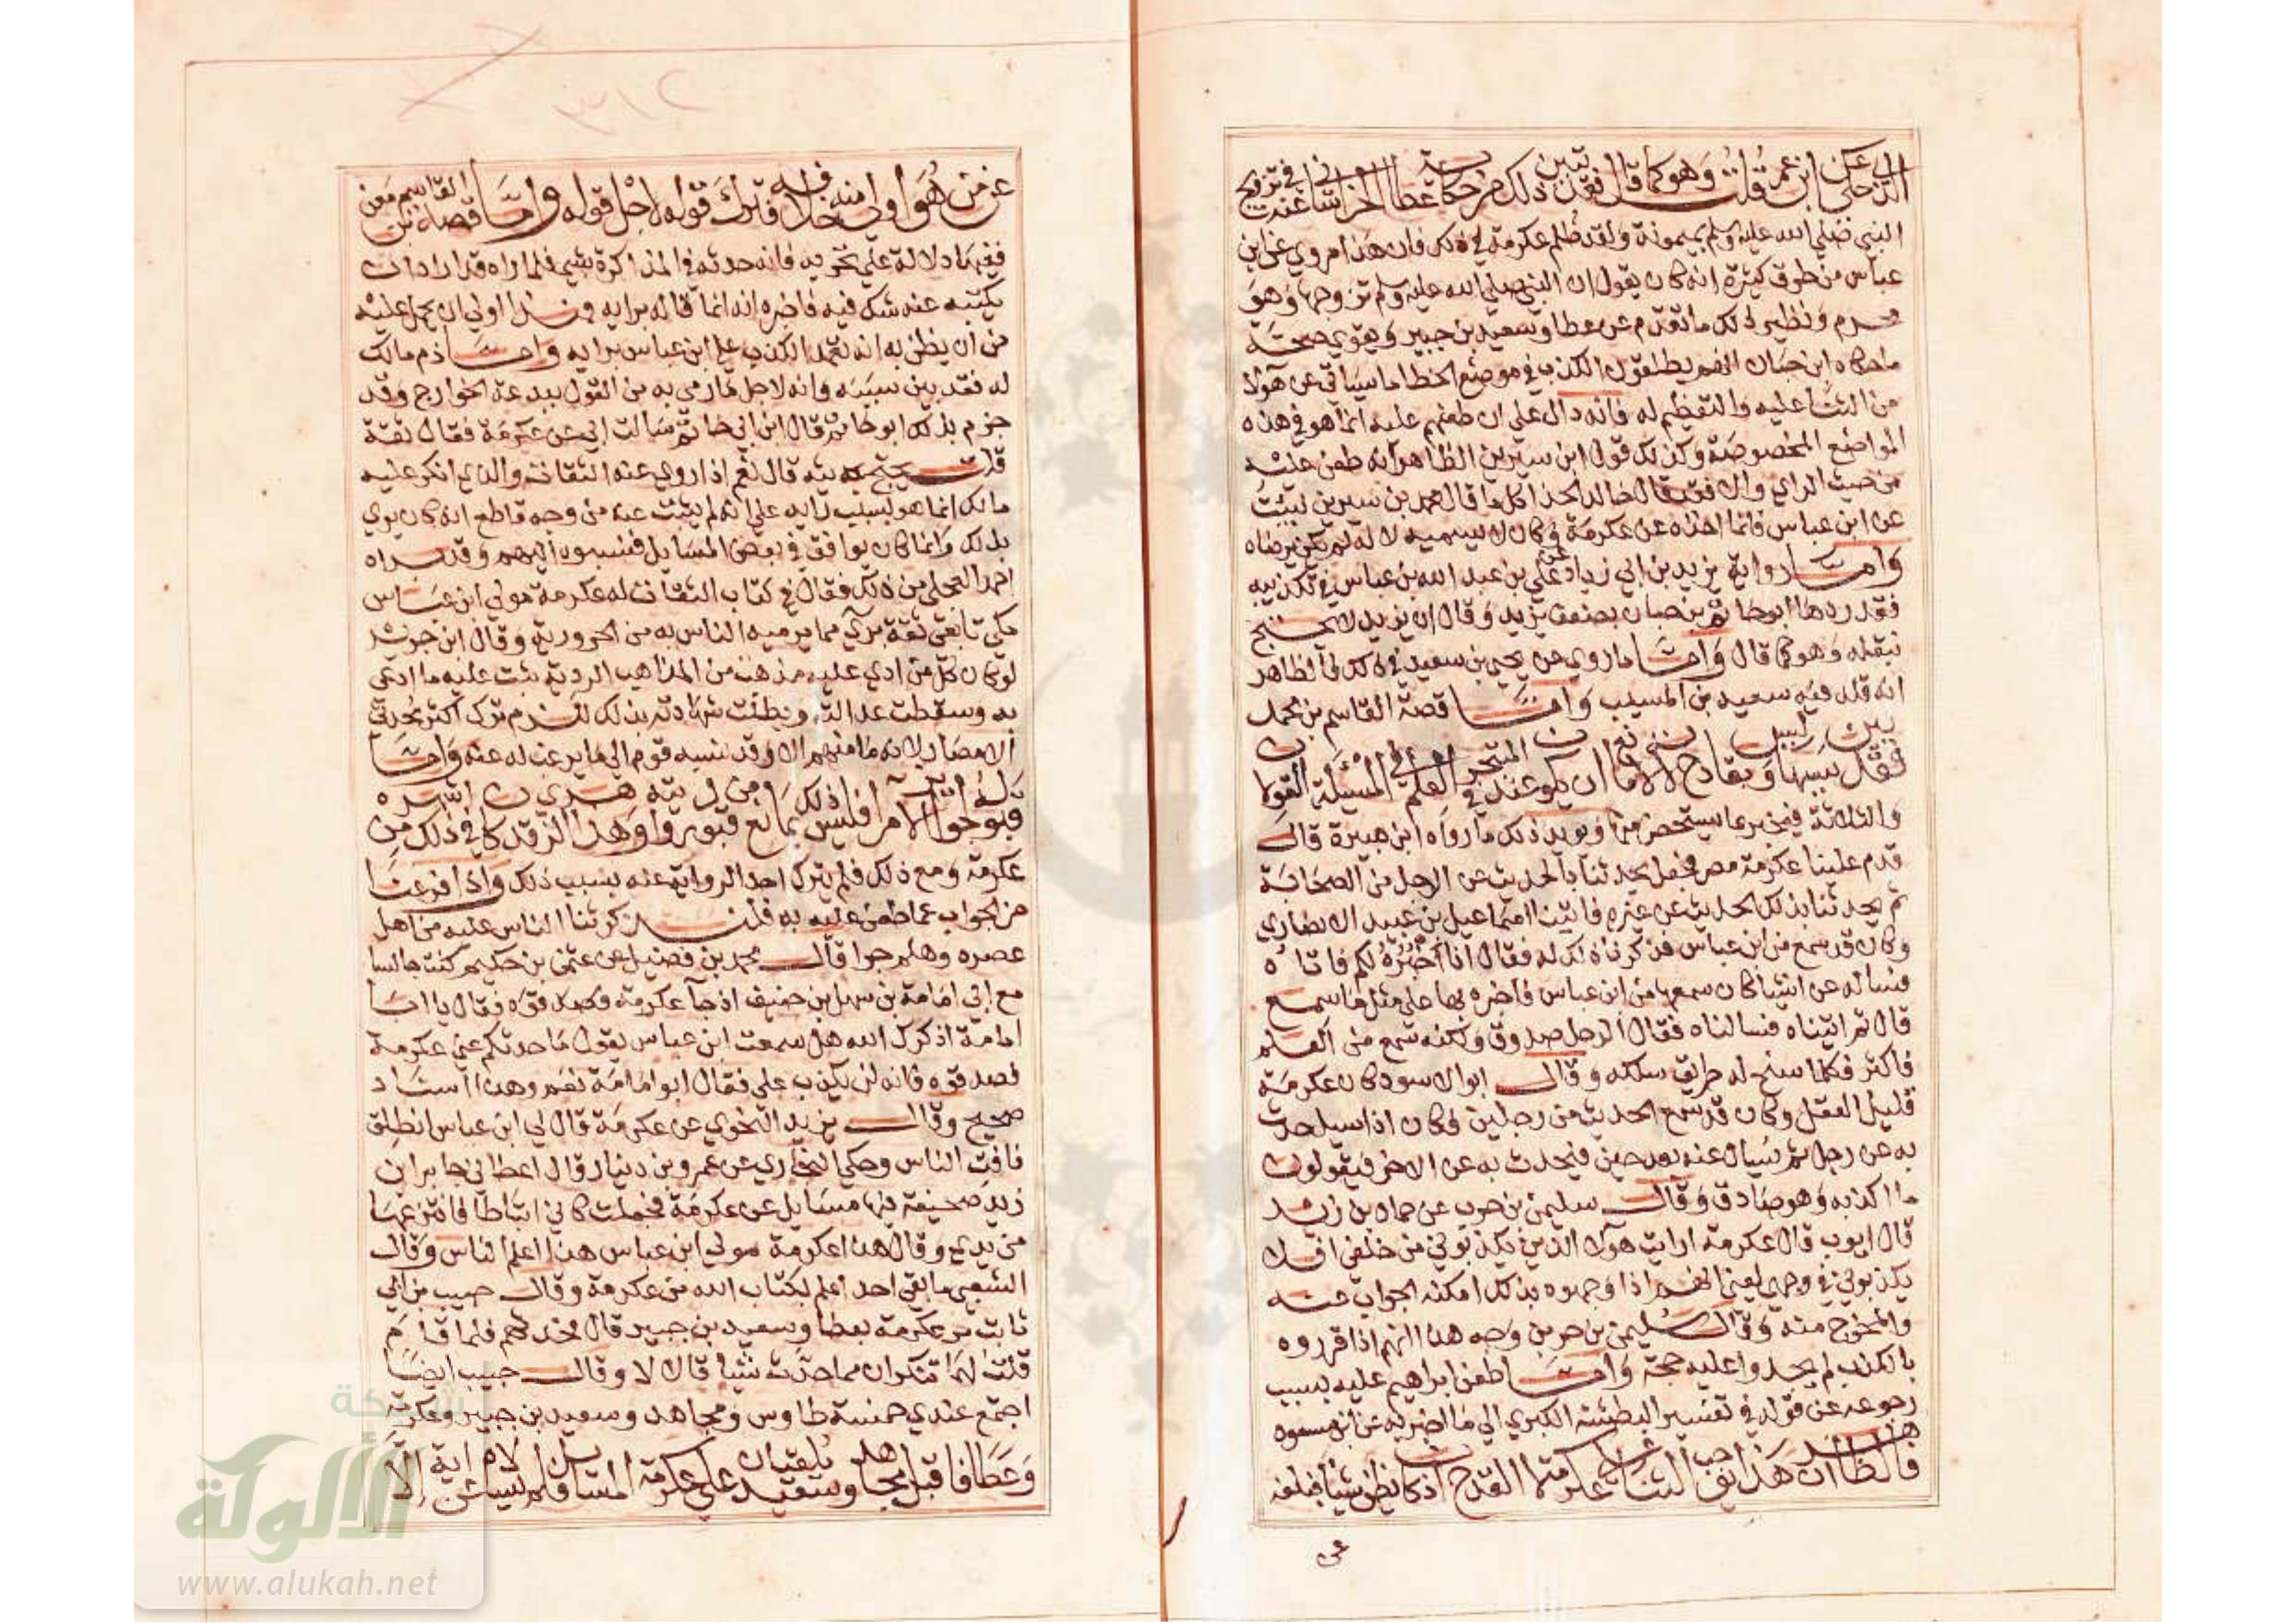 الذي حكى عن ابن عمر قلت وهو كما قال فقد تبين ذلك من حكايته عن عطا الخراساني عنه في تزويج
النبي صلي الله عليه وسلم بميمونة ولقد ظلم عكرمة في ذلك فان هذا مروي عن ابن
عباس من طرق كثيرة انه كان يقول ان النبي صلي الله عليه وسلم تزوجها وهو
محرم ونظير ذلك ما تقدم عن عطا وسعيد بن جبير ويقوي صحة
ما حكاه ابن حبان انهم يطلقون الكذب في موضع الخطا ما سياتي عن هولا
من الثنا عليه والتعظيم له فانه دال علي ان طعنهم عليه انما هو في هذه
المواضع المخصوصة وكذلك قول ابن سيرين الظاهر انه طعن عليه
من حيث الراي والا فقد قال خالد الحذا كل ما قال محمد بن سيرين نبيت
عن ابن عباس فانما اخذه عن عكرمة وكان لا يسميه لانه لم يكن يرضاه
وامـــا رواية يزيد بن ابي زياد عن علي بن عبد الله بن عباس في تكذيبه
فقد ردها ابو حاتم بن حبان بضعف يزيد وقال ان يزيد لا يحتج
بنقله وهو كما قال وامـــا ما روي عن يحيي بن سعيد في ذلك فالظاهر
انه قلد فيه سعيد بن المسيب وامـــا قصة القاسم بن محمد
فقد بين سببها وليس بقادح لانه لا مانع ان يكون عند المتبحر في العلم في المسئلة القولان
والثلاثة فيخبر بما يستحضر منها ويويد ذلك ما رواه ابن هبيرة قال
قدم علينا عكرمة مصر فجعل يحدثنا بالحديث عن الرجل من الصحابة
ثم يحدثنا بذلك الحديث عن غيره فاتينا اسماعيل بن عبيد الانصاري
وكان قد سمع من ابن عباس فذكرنا ذلك له فقال انا اخبره لكم فاتاه
فساله عن اشيا كان سمعها من ابن عباس فاخبره بها علي مثل ما سمع
قال ثم اتيناه فسالناه فقال الرجل صدوق ولكنه سمع من العلم
فاكثر فكلما سنح له طريق سلكه وقال ابو الاسود كان عكرمة
قليل العقل وكان قد سمع الحديث من رجلين فكان اذا سيل حدث
به عن رجل ثم يسال عنه بعد حين فيحدث به عن الاخر فيقولون
ما اكذبه وهو صادق وقال سليمن بن حرب عن حماد بن زيد
قال ايوب قال عكرمة ارايت هولا الذين يكذبوني من خلفي افلا
يكذبوني في وجهي يعني انهم اذا وجهوه بذلك امكنه الجواب عنه
والمخرج منه وقال سليمن بن حرب وجه هذا انهم اذا قرروه
بالكذب لم يجدوا عليه حجة وامـــا طعن ابراهيم عليه بسبب
رجوعه عن قوله في تفسير البطشة الكبري الي ما اخبر به عن ابن مسعود
فالظاهر ان هذا يوجب الثنا علي عكرمة لا القدح اذ كان يظن شيا فبلغه
عن
٣١٢
عن من هو اولي منه خلافه فترك قوله لاجل قوله وامـــا قصة القاسم بن معن
ففيها دلالة علي تحريه فانه حدثه في المذاكرة بشي فلما راه قد اراد ان
يكتبه عنه شك فيه فاخبره انه انما قاله برايه فهذا اولي ان يحمل عليه
من ان يظن به انه تعمد الكذب علي ابن عباس برايه وامـــا ذم مالك
له فقد بين سببه وانه لاجل ما رمي به من القول ببدعة الخوارج وقد
جزم بذلك ابو حاتم قال ابن ابي حاتم سالت ابي عن عكرمة فقال ثقة
قلت يحتج بحديثه قال نعم اذا روي عنه الثقات والذي انكر عليه
مالك انما هو بسبب رايه علي انه لم يثبت عنه من وجه قاطع انه كان يري
بذلك وانما كان يوافق في بعض المسايل فنسبوه اليهم وقد براه
احمد العجلي من ذلك فقال في كتاب الثقات له عكرمة مولي ابن عباس
مكي تابعي ثقة بري مما يرميه الناس به من الحرورية وقال ابن جرير
لو كان كل من ادعي عليه مذهب من المذاهب الردية ثبت عليه ما ادعي
به وسقطت عدالته وبطلت شهادته بذلك للزم ترك اكثر محدثي
الامصار لانه ما منهم الا وقد نسبه قوم الي ما يرغب به عنه وامـــا
قبوله جوايز الامرا فليس ذلك بمانع من قبول روايته وهذا الزهري قد كان في ذلك اشهر من
عكرمة ومع ذلك فلم يترك احد الرواية عنه بسبب ذلك واذا فرغنا
من الجواب عما طعن عليه به فلنذكر ثنا الناس عليه من اهل
عصره وهلم جرا قال محمد بن فضيل عن عثمن بن حكيم كنت جالسا
مع ابي امامة بن سهل بن حنيف اذ جا عكرمة فقال يا ابا
امامة اذكرك الله هل سمعت ابن عباس يقول ما حدثكم عني عكرمة
فصدقوه فانه لن يكذب علي فقال ابو امامة نعم وهذا اسناد
صحيح وقال يزيد النحوي عن عكرمة قال لي ابن عباس انطلق
فافت الناس وحكي البخاري عن عمرو بن دينار قال اعطاني جابر ابن
زيد صحيفة فيها مسايل عن عكرمة فجعلت كاني اتباطا فانتزعها
من يدي وقال هذا عكرمة مولي ابن عباس هذا اعلم الناس وقال
الشعبي ما بقي احد اعلم بكتاب الله من عكرمة وقال حبيب بن ابي
ثابت مر عكرمة بعطا وسعيد بن جبير قال فحدثهم فلما قام
قلت لهما تنكران مما حدث شيا قال لا وقال حبيب ايضا
اجتمع عندي خمسة طاوس ومجاهد وسعيد بن جبير وعكرمة
وعطا فاقبل مجاهد وسعيد يلقيان علي عكرمة المسايل فلم يسالاه عن اية الا
شبكة
الألوكة
www.alukah.net